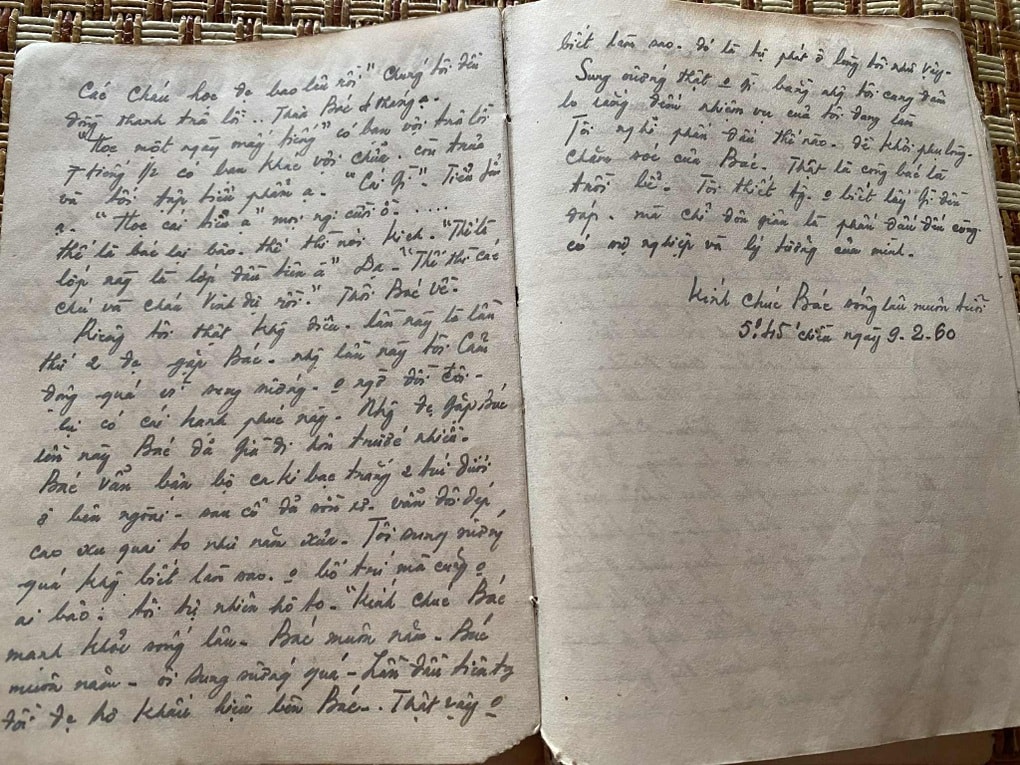 Các cháu học đc bao lâu rồi" Chúng tôi đều
đồng thanh trả lời.. Thưa Bác 4 tháng ạ.
"Học một ngày mấy tiếng" có bạn vội trả lời
7 tiếng 1/2 có bạn khác vội chữa. con thưa
và tối tập biểu phẩm ạ. "Cái gì". Tiểu phẩm
ạ. "Học cái biểu ạ" mọi ng cười ồ. .....
thế là bác lại bảo. thế thì nói kịch. "Thế là
lớp này là lớp đầu tiên à" Dạ. "Thế thì các
chú và cháu Vinh dự rồi." Thôi Bác về.
Riêng tôi thật khg điều. lần này là lần
thứ 2 đc gặp Bác. nhg lần này tôi Cảm
động quá vì sung sướng. o ngờ đời tôi.
lại có cái hạnh phúc này. Nhg đc gặp Bác
lần này Bác đã già đi hơn trước nhiều.
Bác vẫn bận bộ ca ki bạc trắng 2 túi dưới
ở bên ngoài. sau cổ đã sờn xơ. vẫn đôi dép
cao xu quai to như năm xưa. Tôi sung sướng
quá khg biết làm sao. o bố trí mà cũng o
ai bảo. tôi tự nhiên hô to. "Kính chúc Bác
mạnh khỏe sống lâu. Bác muôn năm. Bác
muôn năm. ôi sung sướng quá. Lần đầu tiên tg
đời đc hô khẩu hiệu bên Bác.. Thật vậy o
biết làm sao. đó là tự phát ở lòng tôi như vậy.
Sung sướng thật o gì bằng nhg tôi càng đâm
lo rằng đến nhiệm vụ của tôi đang làm
Tôi nghĩ phấn đấu thế nào. để khỏi phụ lòng.
chăm sóc của Bác. Thật là công bác là
trời bể. Tôi thiết tg. o biết lấy gì đền
đáp. mà chỉ đơn giản là phấn đấu đến cùng.
có sự nghiệp và lý tưởng của mình.
Kính chúc Bác sống lâu muôn tuổi
5h45 chiều ngày 9.2.60